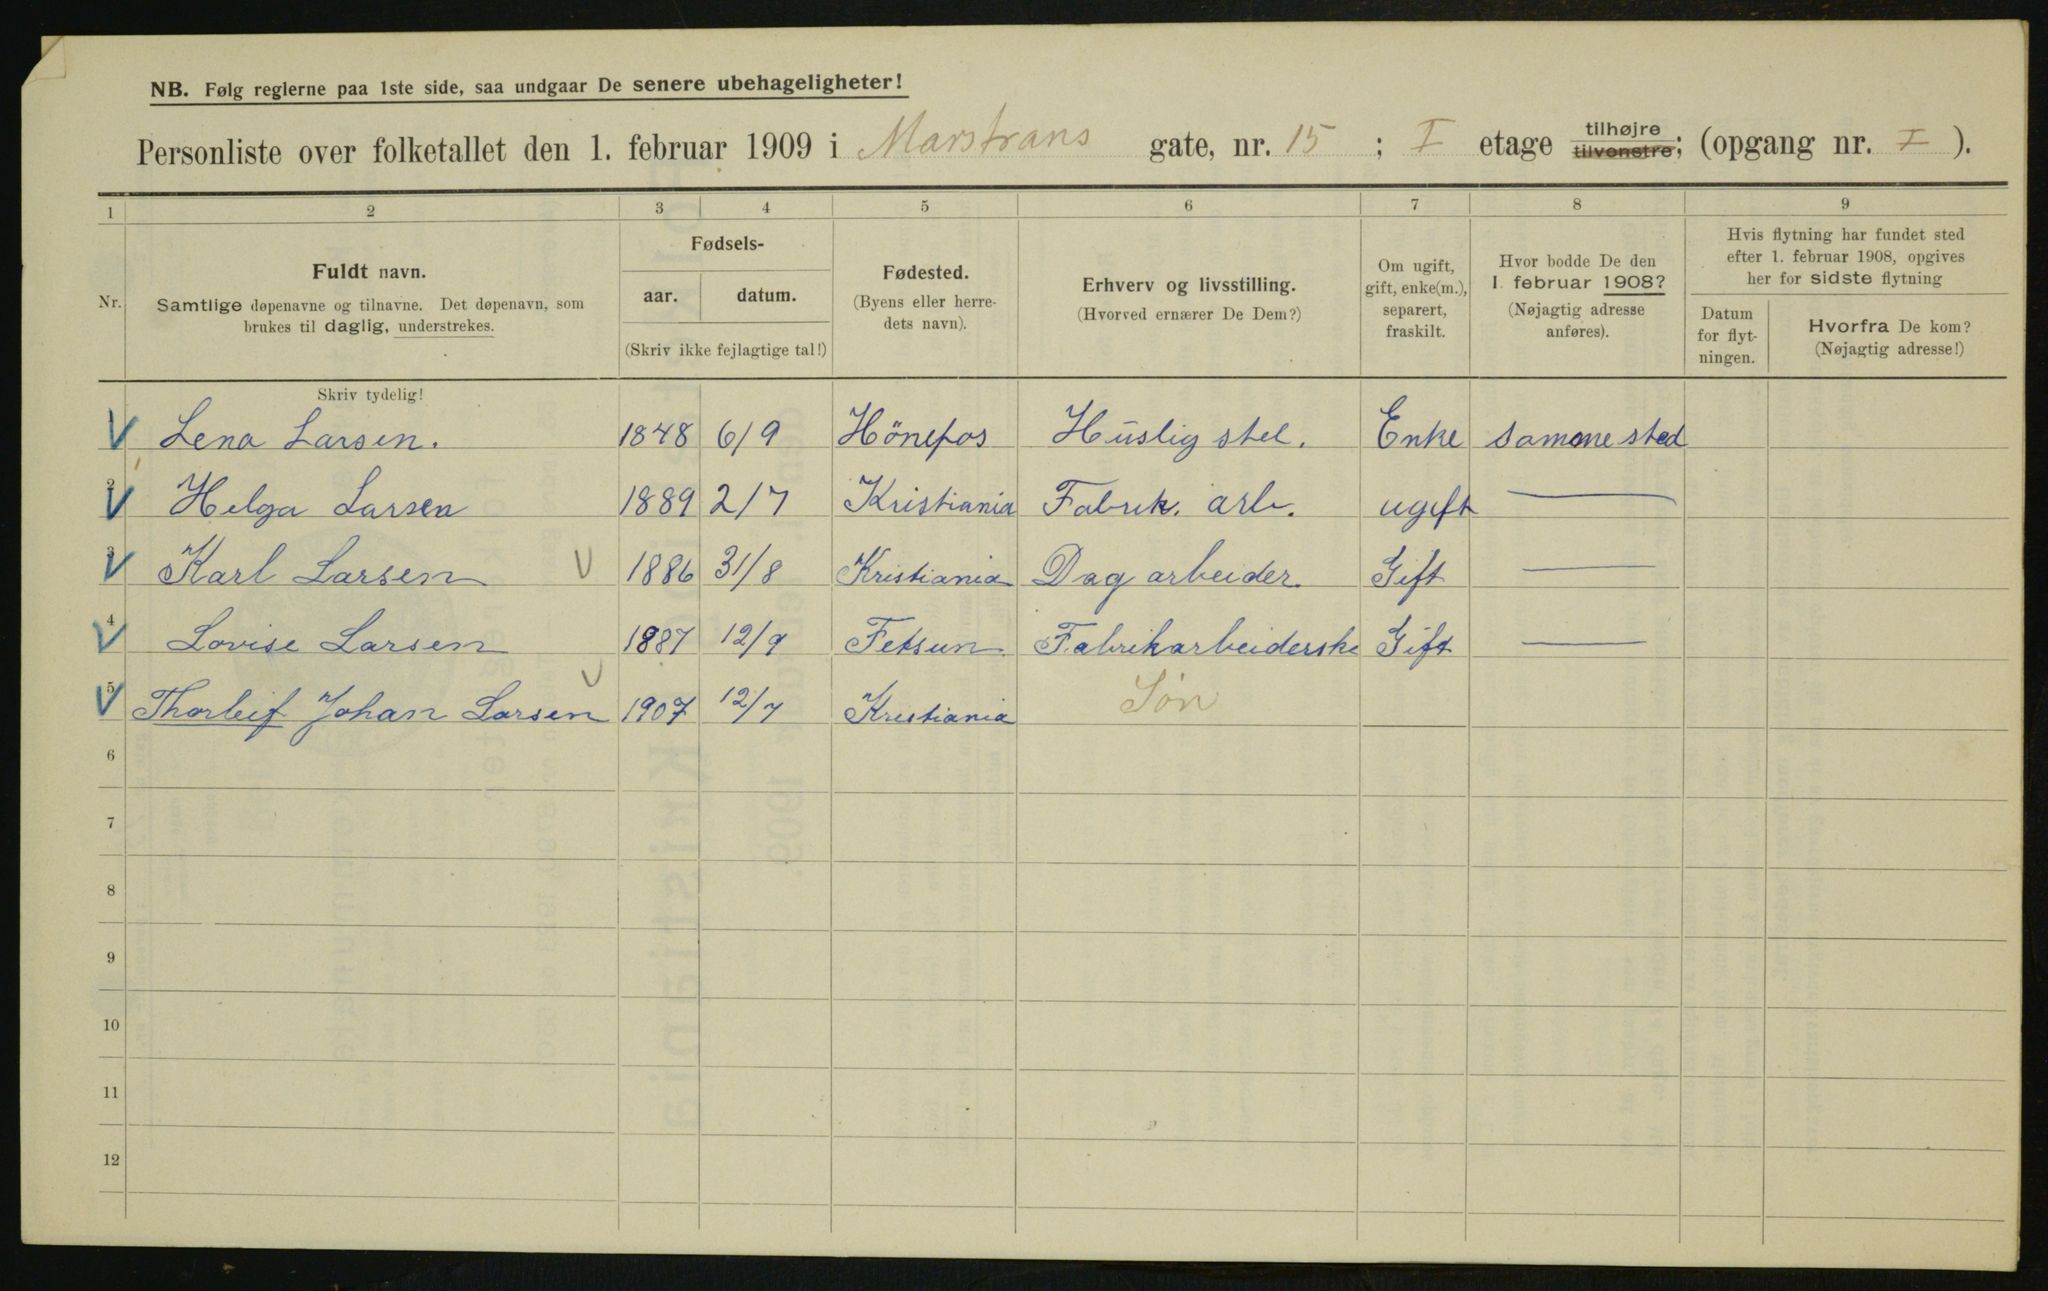 NB. Følg reglerne paa 1ste side, saa undgaar De senere ubehageligheter!
Personliste over folketallet den 1. februar 1909 i Marstrans gate, nr. 15 ; I etage tilhøjre tilvenstre; (opgang nr. I ).
1 2 3 4 5 6 7 8 9
Nr.
Fuldt navn.
Samtlige døpenavne og tilnavne. Det døpenavn, som
brukes til daglig, understrekes.
Fødsels-
aar. datum.
(Skriv ikke fejlagtige tal!)
Fødested.
(Byens eller herre-
dets navn).
Erhverv og livsstilling.
(Hvorved ernærer De Dem?)
Om ugift,
gift, enke(m.),
separert,
fraskilt.
Hvor bodde De den
1. februar 1908?
(Nøjagtig adresse
anføres).
Hvis flytning har fundet sted
efter 1. februar 1908, opgives
her for sidste flytning
Datum
for flyt-
ningen.
Hvorfra De kom?
(Nøjagtig adresse!)
Skriv tydelig!
Lena Larsen. 1848 6/9 Hönefos Huslig stel. Enke samme sted
2 Helga Larsen 1889 2/7 Kristiania Fabrik. arb. ugift —
3 Karl Larsen 1886 31/8 Kristiania Dag arbeider. Gift —
4 Lovise Larsen 1887 12/9 Fetsun Fabrikarbeiderske Gift —
5 Thorleif Johan Larsen 1907 12/7 Kristiania Søn
6
7
8
9
10
11
12